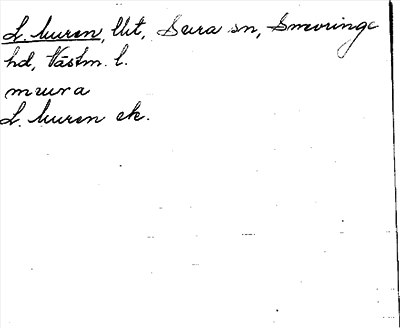 L. Muren, llt, Sura sn, Snevringe
hd, Västm. l.
mura
L. Muren ek.